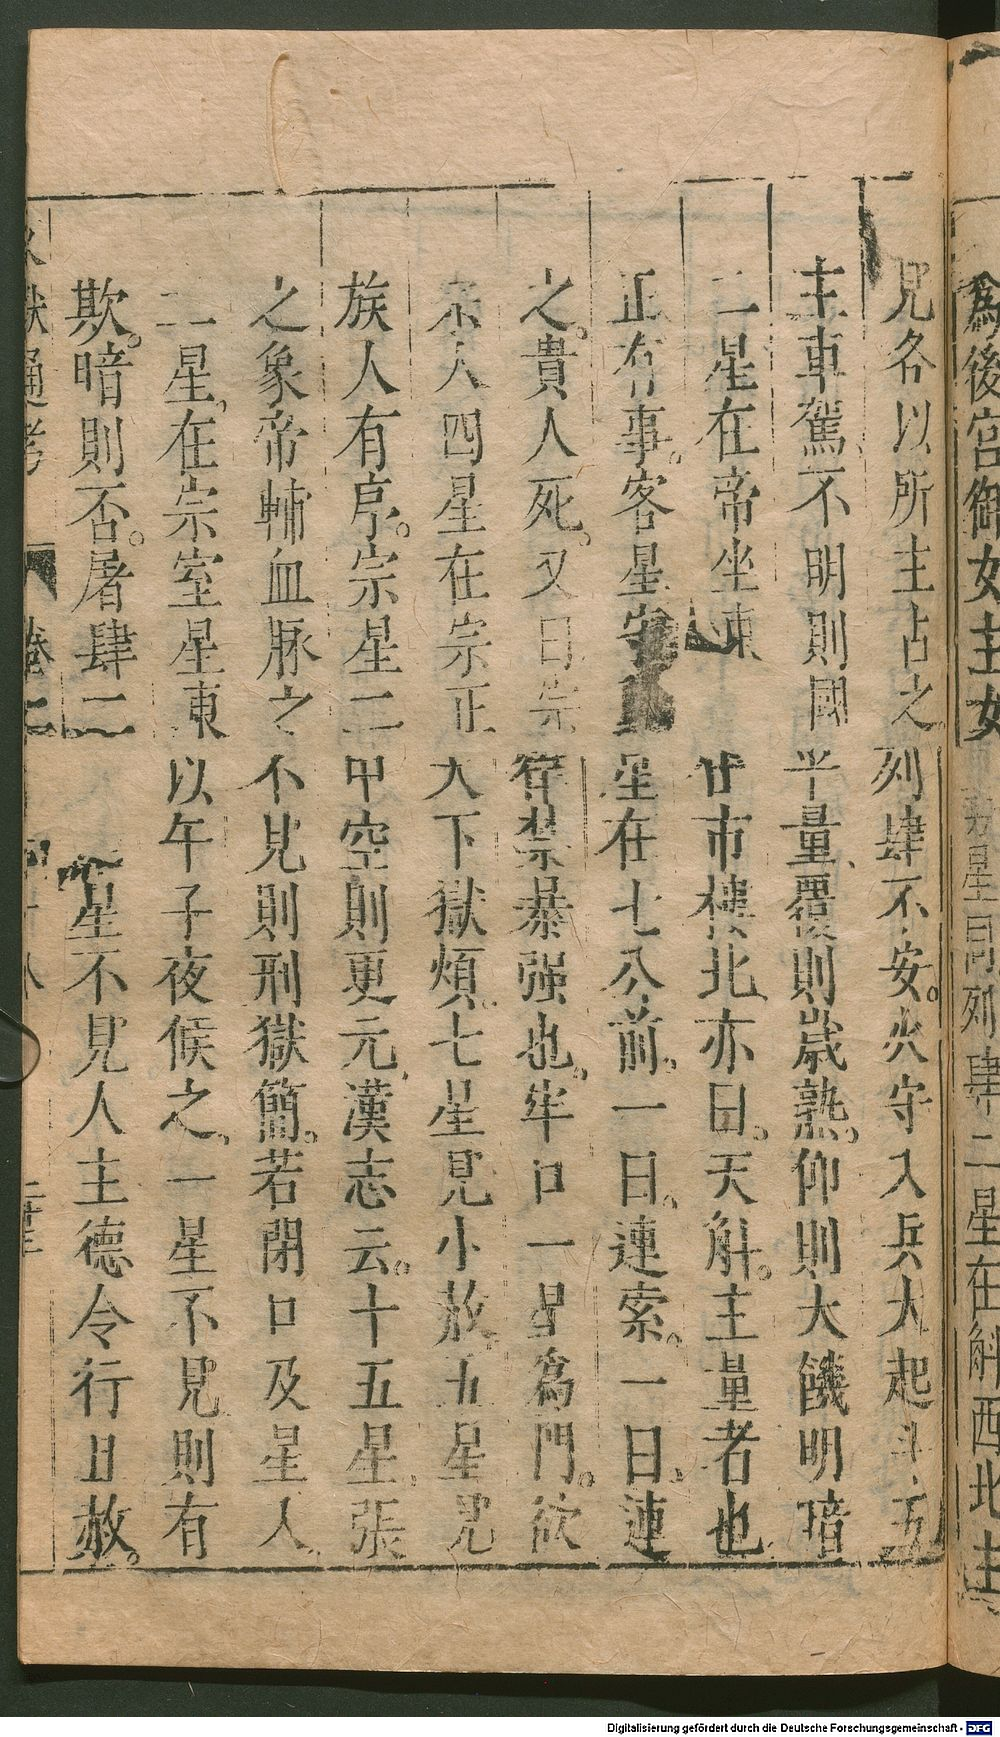 爲後宫御女主女
星同列肆二星在斛西北主
見各以所主占之列肆不安火守入兵大起斗五
主車駕不明則國半量覆則歲熟仰則大饑明暗
二星在帝坐東 市樓北亦曰天斛主量者也
正有事客星守 星在七公前一曰連索一曰連
之貴人死又曰宗 禁暴强也牢口一星爲門欲
宗人四星在宗正 下獄煩七星見小赦五星見
族人有序宗星二 空則更元漢志云十五星張
之象帝輔血脉之不見則刑獄簡若閉口及星入
二星在宗室星東以午子夜候之一星不見則有
欺暗則否屠肆二 星不見人主德令行且赦
獻通考 卷二 十八
Digitalisierung gefördert durch die Deutsche Forschungsgemeinschaft - DFG